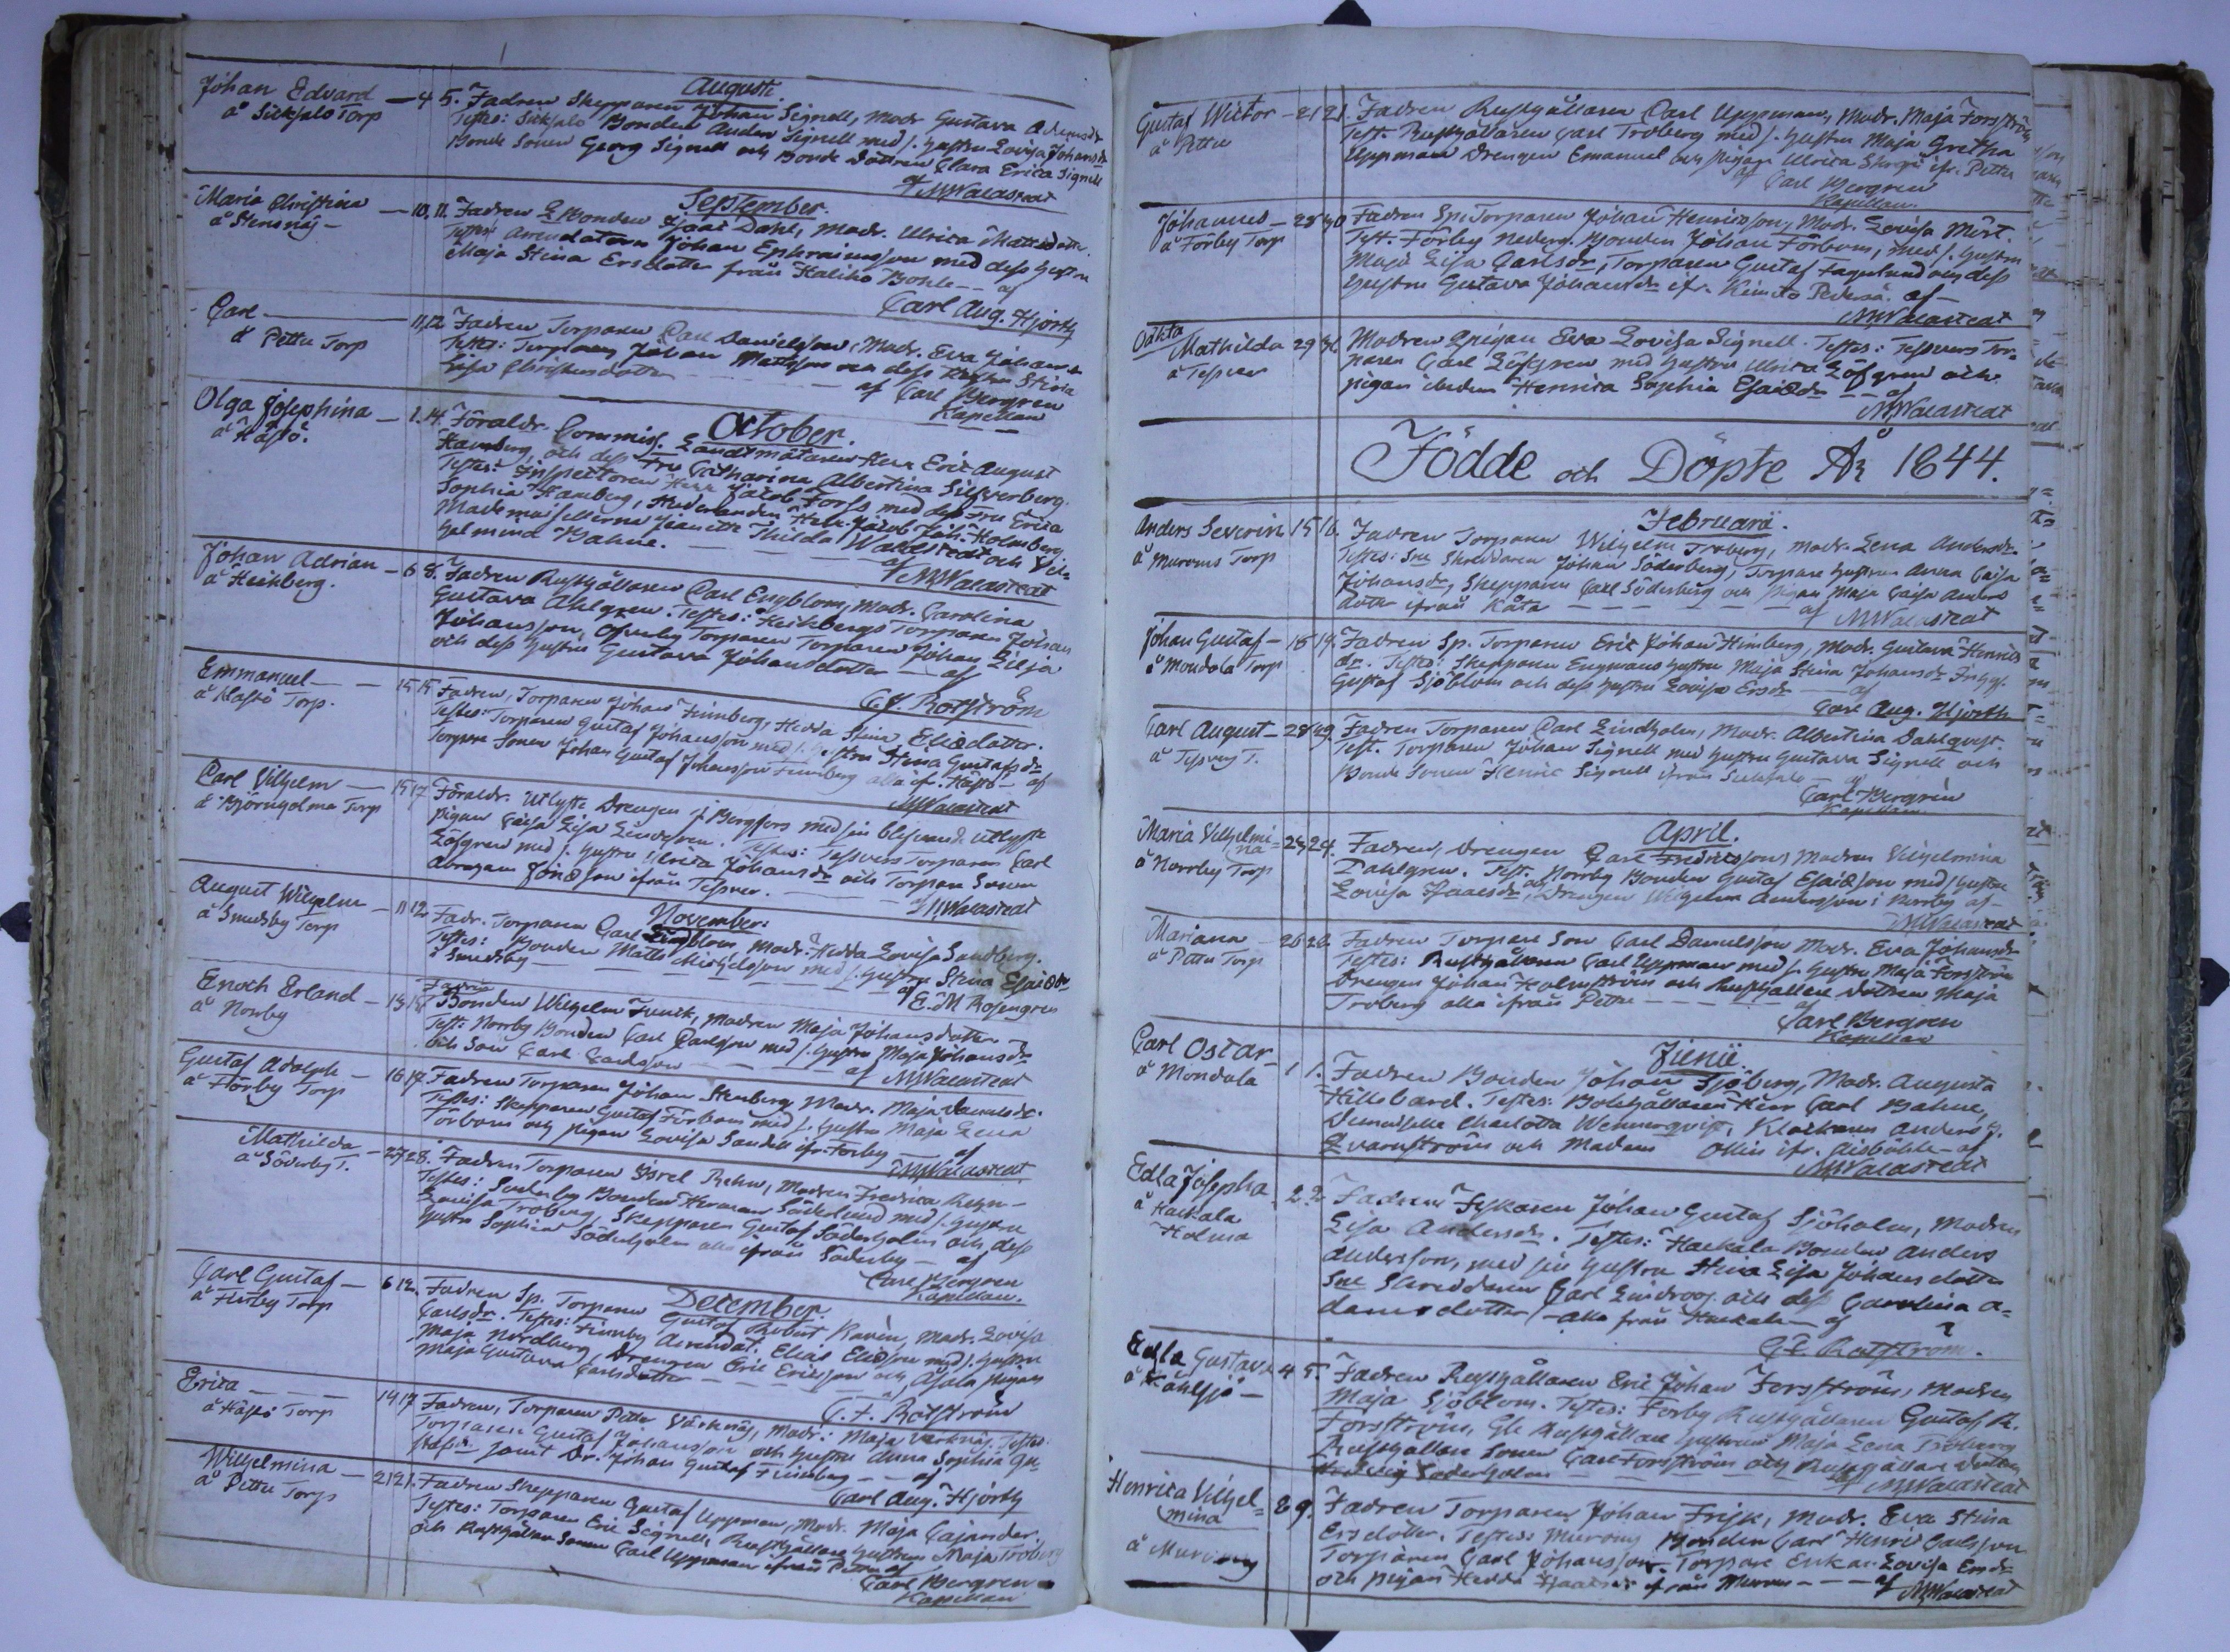 Augusti
Johan Edvard — 4 5. Fadren Skepparen Johan Signell, Modr. Gustava
å Sicksalo Torp Testes: Sicksalo Bonden Anders Signell med s. hustru Lovisa Johansdr
Bonde Sonen Georg Signell och Bonde Dottren Clara Erica Signell
af M Walastedt
September.
Maria Christina — 10, 11. Fadren Bonden Isaac Dahl, Modr. Ulrica
å Stensnäs — Testes: Arrendatorn Johan Ephraimsson med dess hustru
Maja Stina Ersdotter från Kaliko Bohle — af
Carl Aug. Hjorth
Carl — 11, 12 Fadren Torparen Carl Danielsson, Modr. Eva Johansdr
å Pettu Torp Testes: Torparen Johan Mattsson och dess hustru Stina
Lisa Christersdotter — af Carl Bergren
Kapellan
October.
Olga Josephina — 1. 14. Föräldr. Commiss. Landtmätaren Herr Eric August
å Hästö. Hamberg, och dess Fru Catharina Albertina Silfverberg.
Testes: Inspectoren Herr Jacob Forss med dess Fru Erica
Sophia Hamberg, Studeranden Herr Jacob Joh. Holmberg.
Mademoisellerna Jeanette Thilda Walastedt och Vil-
helmina Bahne. — af M Walastedt
Johan Adrian — 6 8. Fadren Rusthållaren Carl Engblom, Modr. Carolina
å Heikberg. Gustava Ahlgren. Testes: Heikbergs Torparen Johan
Johansson, Torparen Johan Lilja
och dess hustru Gustava Johansdotter — af
C. F. Rotström
Emmanuel — 15 15 Fadren, Torparen Johan Finnberg, Hedda Stina Eliedotter.
å Hästö Torp. Testes: Torparen Gustaf Johansson med s. hustru Stina Gustafsdr
Torpare Sonen Johan Gustaf Johansson Finnberg alla ifr. Hästö — af
M Walastedt
Carl Vilhelm — 15 17 Föräldr. Utlyste Drengen J. Bergfors med sin blifvande utlyste
å Björnholma Torp pigan Caisa Lisa Lindgren. Testes: Tessvers Torparen Carl
Löfgren med s. hustru Ulrica Johansdr och Torpare Sonen
Abraham Jonæson ifrån Tessver. — af M Walastedt
November.
August Wilhelm — 11 12. Fadr. Torparen Carl Lindblom, Modr. Hedda Lovisa Sandberg.
å Smedsby Torp Testes: Bonden Matts Michelsson med s. hustru Stina Esaiædr
å Smedsby af E. M Rosengren
Enoch Erland — 13 15 Fadren Bonden Wilhelm Funck, Modren Maja Johansdotter
å Norrby Test: Norrby Bonden Carl Carlsson med s. hustru Maja Johansdr
och Son Carl Carlsson — af M Walastedt
Gustaf Adolph — 16 17 Fadren Torparen Johan Stenberg, Modr. Maja Danielsdr.
å Förby Torp Testes: Skepparen Gustaf Förbom med s. hustru Maja Lena
Förbom och pigan Lovisa Sandell ifr. Förby af
M Walastedt.
Mathilda — 27 28. Fadren Torparen Isrel Rehn, Modren Fredrica Rehn —
å Söderby T. Testes: Söderby Bonden Herman Söderlund med s. hustru
Lovisa Troberg, Skepparen Gustaf Söderholm och dess
hustru Sophia Söderholm alla ifrån Söderby — af
Carl Bergren
Kapellan.
December.
Carl Gustaf — 6 12. Fadren Sp. Torparen Gustaf Robert Karén, Modr. Lovisa
å Finby Torp Carlsdr. Testes: Finnby Arrendat. Elias Eliesson med s. hustru
Maja Nordberg, Drengen Eric Ericsson och pigan
Maja Gustava Carlsdotter —
C. F. Rotström
Erica — 14 17 Fadren, Torparen Petter Värknäs, Modr.: Maja Värknäs. Testes:
å Hästö Torp Torparen Gustaf Johansson och hustru Anna Sophia Gu-
stafsdr samt Dr. Johan Gustaf Finnberg — af
Carl Aug. Hjorth
Wilhelmina — 21 21. Fadren Skepparen Gustaf Uppman, Modr. Maja Cajander
å Pettu Torp Testes: Torparen Eric Signell, Rusthållare hustrun Maja Troberg
och Rusthållare Sonen Carl Uppman ifrån Pettu af
Carl Bergren
Kapellan
Gustaf Wictor — 21 21. Fadren Rusthållaren Carl Uppman, Modr. Maja Forsström
å Pettu Test. Rusthållaren Carl Troberg med s. hustru Maja Gretha
Uppman Drengen Emanuel och pigan Ulrica ifr. Pettu
af Carl Bergren
Kapellan.
Johannes — 28 30 Fadren Sp: Torparen Johan Henricsson, Modr. Lovisa Mört.
å Förby Torp Test. Förby Nederg. Bonden Johan Förbom, med s. hustru
Maja Lisa Carlsdr, Torparen Gustaf Fagerlund och dess
hustru Gustava Johansdr ifr. Kimito Pederså. af —
M Walastedt
Oäkta
Mathilda 29 31. Modren pigan Eva Lovisa Signell. Testes: Tessvers Tor-
å Tessver paren Carl Löfgren med hustru Ulrica Löfgren och
pigan Henrica Sophia Esaiædr — af
M Walastedt
Födde och Döpte År 1844.
Februarii.
Anders Severin 15 16. Fadren Torparen Wilhelm Troberg, Modr. Lena Andersdr.
å Muroms Torp Testes: Sne Skräddaren Johan Söderberg, Torpare hustrun Anna Caisa
Johansdr, Skepparen Carl Söderberg och pigan Maja Caisa Anders
dotter ifrån Kåta — af M Walastedt
Johan Gustaf — 18 19. Fadren Sp. Torparen Eric Johan Himberg, Modr. Gustava Henrics
å Mondola Torp dr. Testes: Skepparen Engmans hustru Maja Stina Johansdr Inhys.
Gustaf Sjöblom och dess hustru Lovisa Ersdr — af
Carl Aug. Hjorth
Carl August — 28 29. Fadren Torparen Carl Lindholm, Modr. Albertina Dahlqvist.
å Tessvers T. Test. Torparen Johan Signell med hustru Gustava Signell och
Bonde Sonen Henric Signell ifrån Sicksalo — af
Carl Bergrén
Kapellan.
April.
Maria Vilhelmi-
na 23, 24. Fadren, Drengen Carl Fredricsson, Modren Vilhelmina
å Norrby Torp Dahlgren. Test. Norrby Bonden Gustaf Esaiæson med s hustru
Lovisa Isaacsdr, och Drengen Wilhelm Andersson i Norrby af —
M Walastedt
Mariana — 26 28. Fadren Torpare Son Carl Danielsson Modr. Eva Johansdr
å Pettu Torp Testes: Rusthållaren Carl Uppman med s. hustru Maja Forsström
Drengen Johan Holmström och Rusthållare Dottren Maja
Troberg alla ifrån Pettu — af
Carl Bergren
Kapellan
Junii.
Carl Oscar — 1 1. Fadren Bonden Johan Sjöberg, Modr. Augusta
å Mondola Hillebard. Testes: Bolshållaren Herr Carl Bahne,
Demoiselle Charlotta Wennerqvist, Klockaren Anders J.
Qvarnström och Madam Ollin ifr. Aisböhle — af
M Walastedt
Edla Josepha 2 2 Fadren Fiskaren Johan Gustaf Sjöholm, Modren
å Haekala Lisa Andersdr. Testes: Haekala Bonden Anders
Holma Andersson, med sin hustru Stina Lisa Johansdotter
Sne Skreddaren Carl Lindroos och dess Carolina A-
damsdotter — alla från Haekala — af
C. F. Rotström.
Edla Gustava 4 5. Fadren Rusthållaren Eric Johan Forsström, Modren
å Kåhlsjö — Maja Sjöblom. Testes: Förby Rusthållaren Gustaf A.
Forsström, Gle Rusthållare hustrun Maja Lena Troberg
Rusthållare Sonen Carl Forsström och Rusthållare Dottren
Hedvig Söderholm — af M Walastedt
Henrica Vilhel-
mina 8 9. Fadren Torparen Johan Frisk, Modr. Eva Stina
å Murom Ersdotter. Testes: Muroms Bonden Carl Henric Carlsson
Torparen Carl Johansson. Torpare Enkan Lovisa Ersdr
och pigan Hedda Isaacsdr ifrån Murom — af M Walastedt